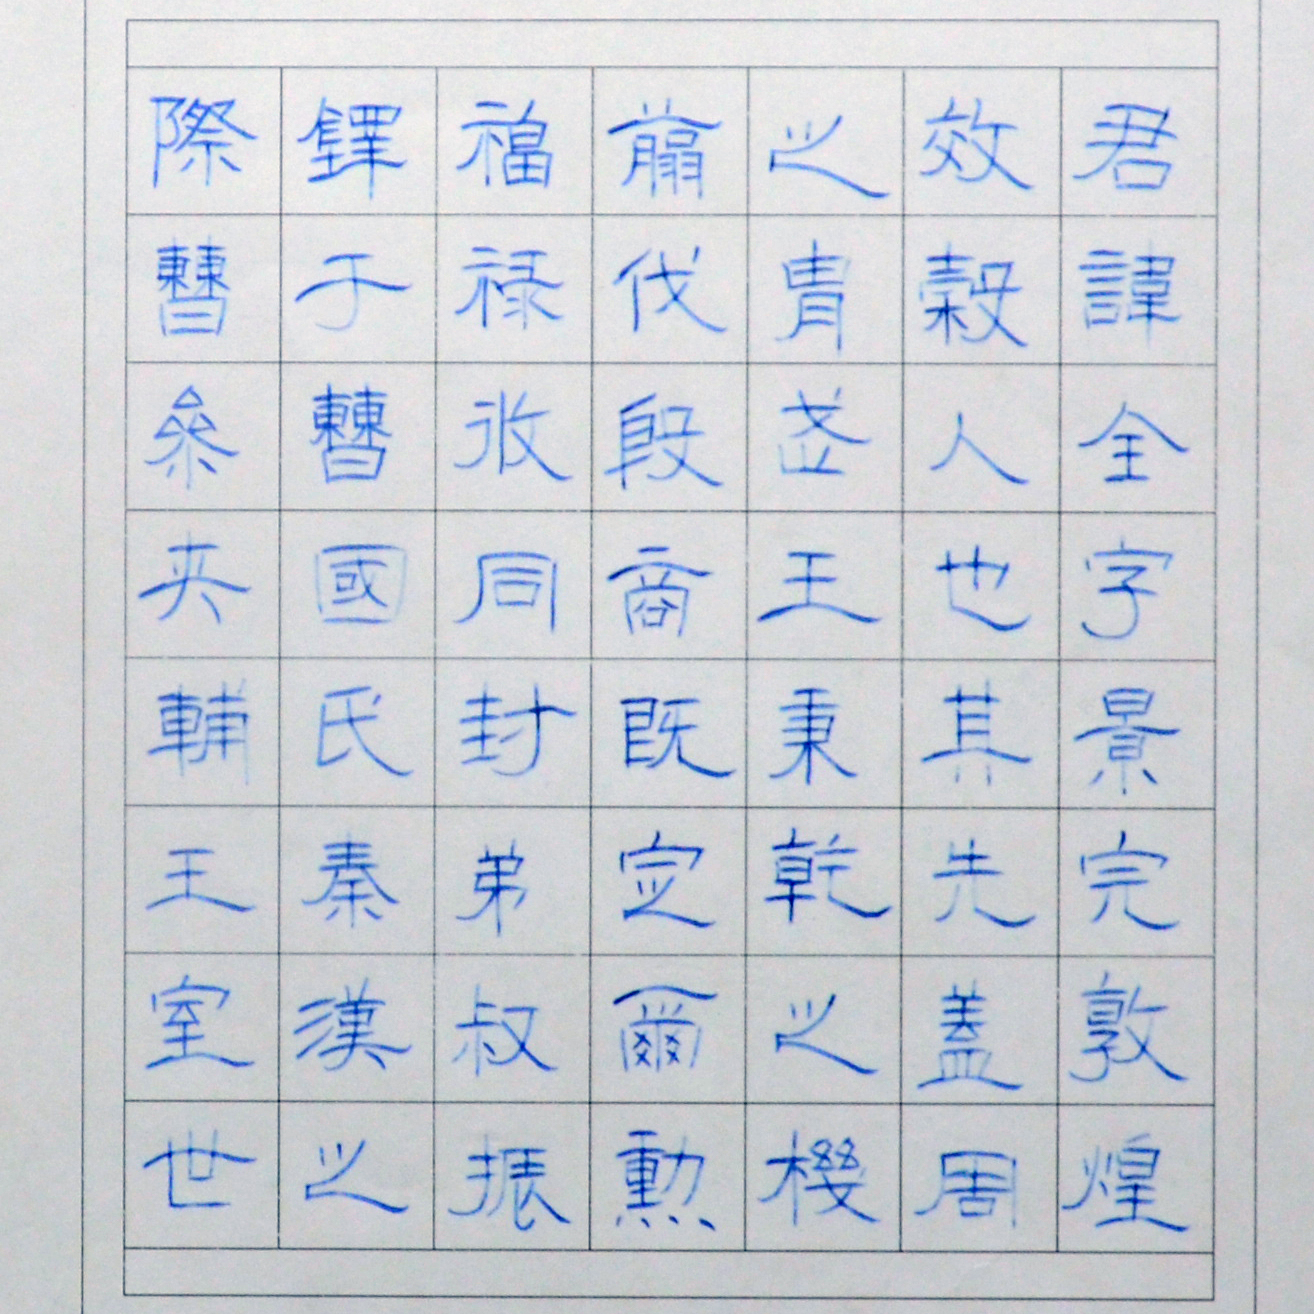 君諱全字景完敦煌
效穀人也其先蓋周
之胄武王秉乾之機
翦伐殷商既定爾勳
福禄攸同封弟叔振
鐸于曹國氏秦漢之
際曹參夾輔王室世